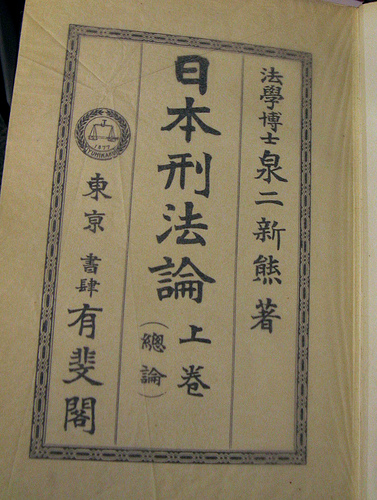 法學博士 泉二新熊 著
日本刑法論 上卷
(總論)
東京 書肆 有斐閣
1877
YUHIKAKU